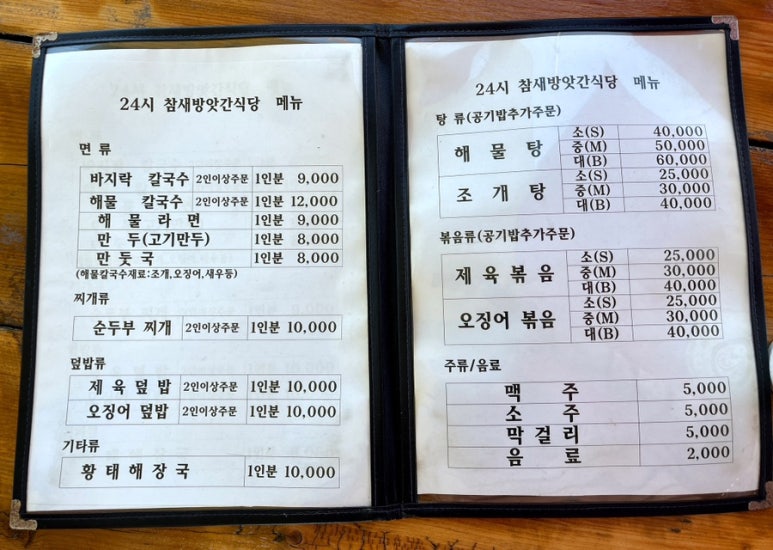 24시 참새방앗간식당 메뉴
면 류
바지락 칼국수 2인이상주문 1인분 9,000
해물 칼국수 2인이상주문 1인분 12,000
해 물 라 면 1인분 9,000
만 두(고기만두) 1인분 8,000
만 둣 국 1인분 8,000
(해물칼국수재료:조개,오징어,새우등)
찌개류
순두부 찌개 2인이상주문 1인분 10,000
덮밥류
제 육 덮 밥 2인이상주문 1인분 10,000
오징어 덮밥 2인이상주문 1인분 10,000
기타류
황 태 해 장 국 1인분 10,000
24시 참새방앗간식당 메뉴
탕 류(공기밥추가주문)
해 물 탕 소(S) 40,000
중(M) 50,000
대(B) 60,000
조 개 탕 소(S) 25,000
중(M) 30,000
대(B) 40,000
볶음류(공기밥추가주문)
제 육 볶 음 소(S) 25,000
중(M) 30,000
대(B) 40,000
오징어 볶음 소(S) 25,000
중(M) 30,000
대(B) 40,000
주류/음료
맥 주 5,000
소 주 5,000
막 걸 리 5,000
음 료 2,000